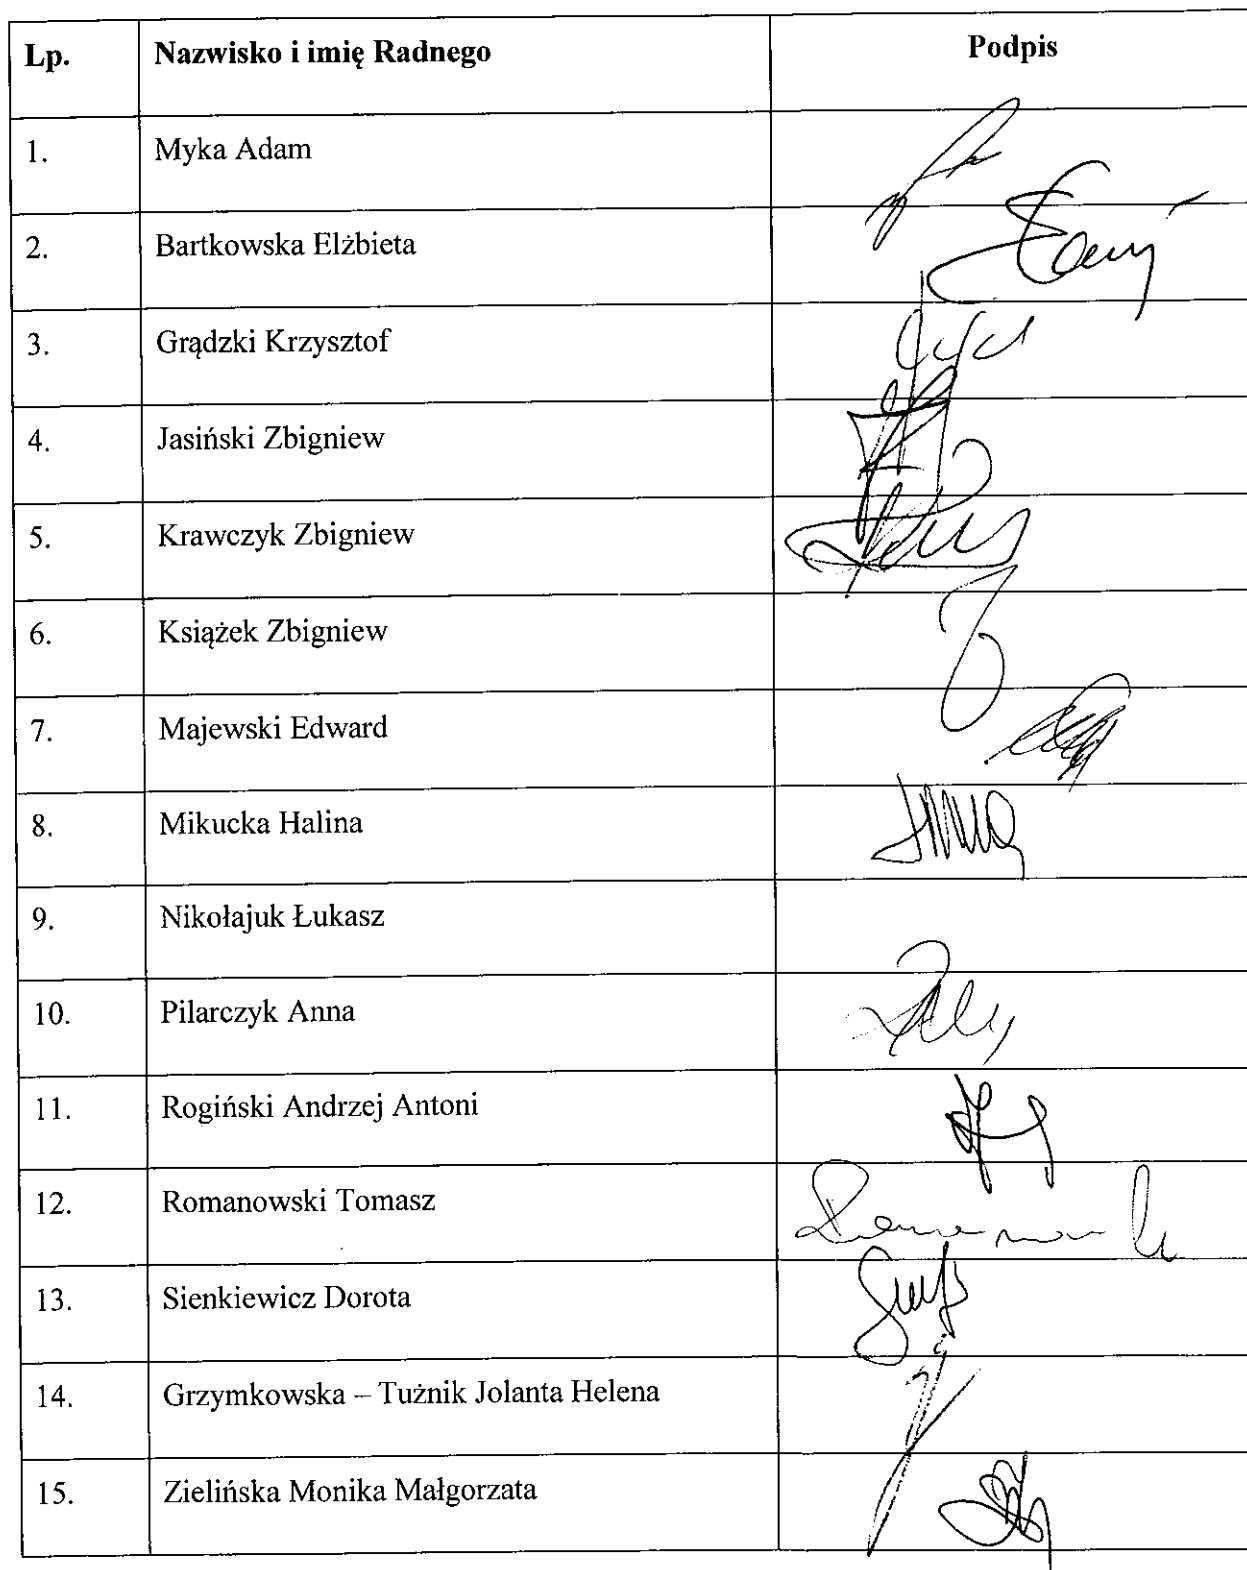 Lp. Nazwisko i imię Radnego Podpis
1. Myka Adam
2. Bartkowska Elżbieta
3. Grądzki Krzysztof
4. Jasiński Zbigniew
5. Krawczyk Zbigniew
6. Książek Zbigniew
7. Majewski Edward
8. Mikucka Halina
9. Nikołajuk Łukasz
10. Pilarczyk Anna
11. Rogiński Andrzej Antoni
12. Romanowski Tomasz
13. Sienkiewicz Dorota
14. Grzymkowska – Tużnik Jolanta Helena
15. Zielińska Monika Małgorzata